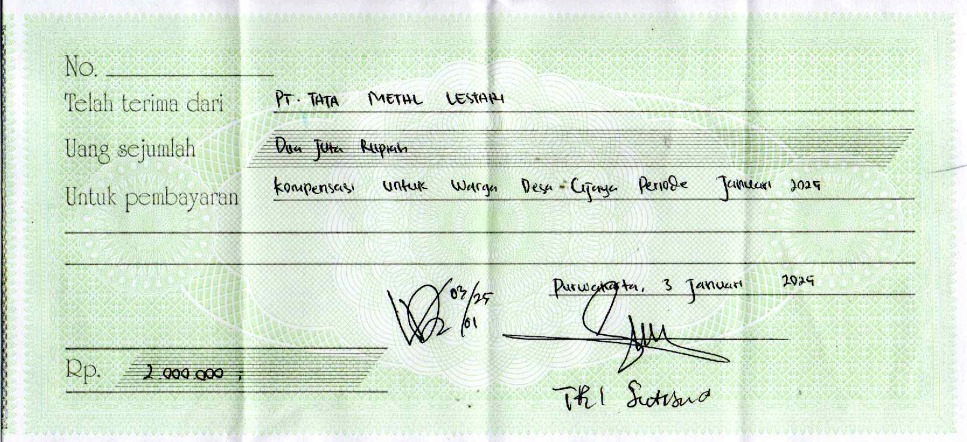 No.
Telah terima dari PT. TATA METAL LESTARI
Uang sejumlah Dua Juta Rupiah
Untuk pembayaran Kompensasi Untuk Warga Desa - Cijaya Periode Januari 2025
Purwakarta, 3 Januari 2025
03/25
/01
Rp. 2.000.000 ,